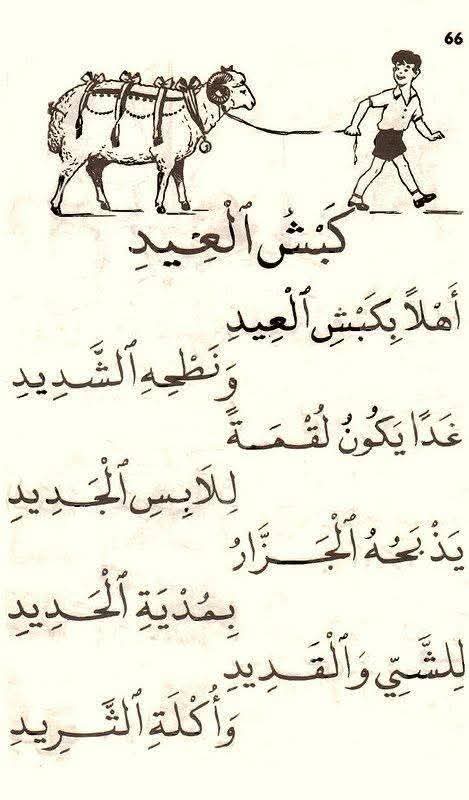 66
كَبْشُ ٱلْعِيدِ
أَهْلاً بِكَبْشِ ٱلْعِيدِ
وَنَطْحِهِ ٱلشَّدِيدِ
غَدًا يَكُونُ لُقْمَةً
لِلَابِسِ ٱلْجَدِيدِ
يَذْبَحُهُ ٱلْجَزَّارُ
بِمُدْيَةِ ٱلْحَدِيدِ
لِلشَّيِّ وَٱلْقَدِيدِ
وَأُكْلَةِ ٱلثَّرِيدِ